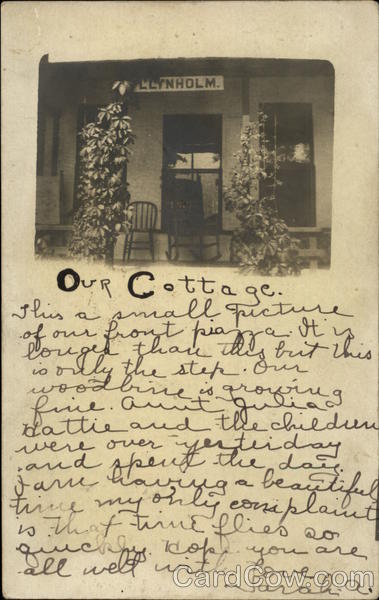 LLYNHOLM.
Our Cottage.
This a small picture
of our front piazza. It is
longer than this but this
is only the step. Our
woodbine is growing
fine. Aunt Julia
Hattie and the children
were over yesterday
and spent the day.
I am having a beautiful
time my only complaint
is that time flies so
quickly. Hope you are
all well with love
Sarah A.
CardCow.com